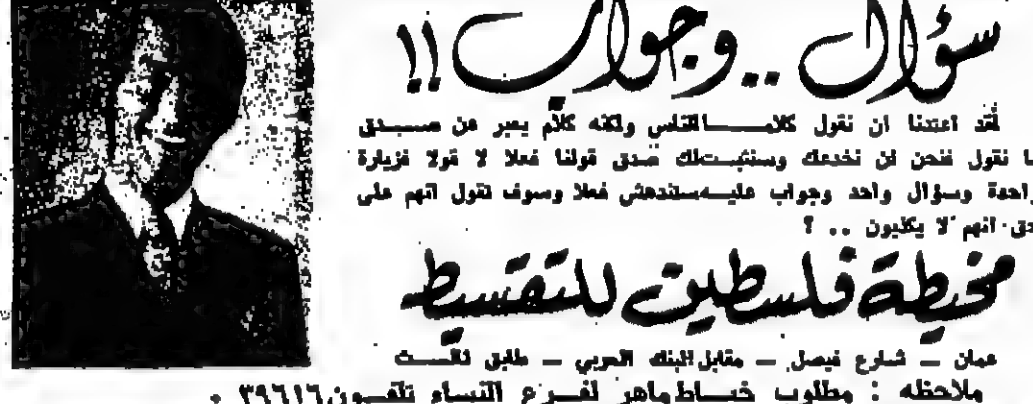 سؤال .. وجواب !!
لقد اعتدنا ان نقول كلامــا للناس ولكنه كلام يعبر عن صــدق
ما نقول فنحن لن نخدعك وسنثبــت لك صدق قولنا فعلا لا قولا فزيارة
واحدة وسؤال واحد وجواب عليــه ستندهش فعلا وسوف تقول انهم على
حق انهم لا يكذبون .. ؟
مخيطة فلسطين للتقسيط
عمان – شارع فيصل – مقابل البنك العربي – طابق ثالــث
ملاحظه : مطلوب خيــاط ماهر لفــرع النساء تلفــون ٣٩٦١٦ .